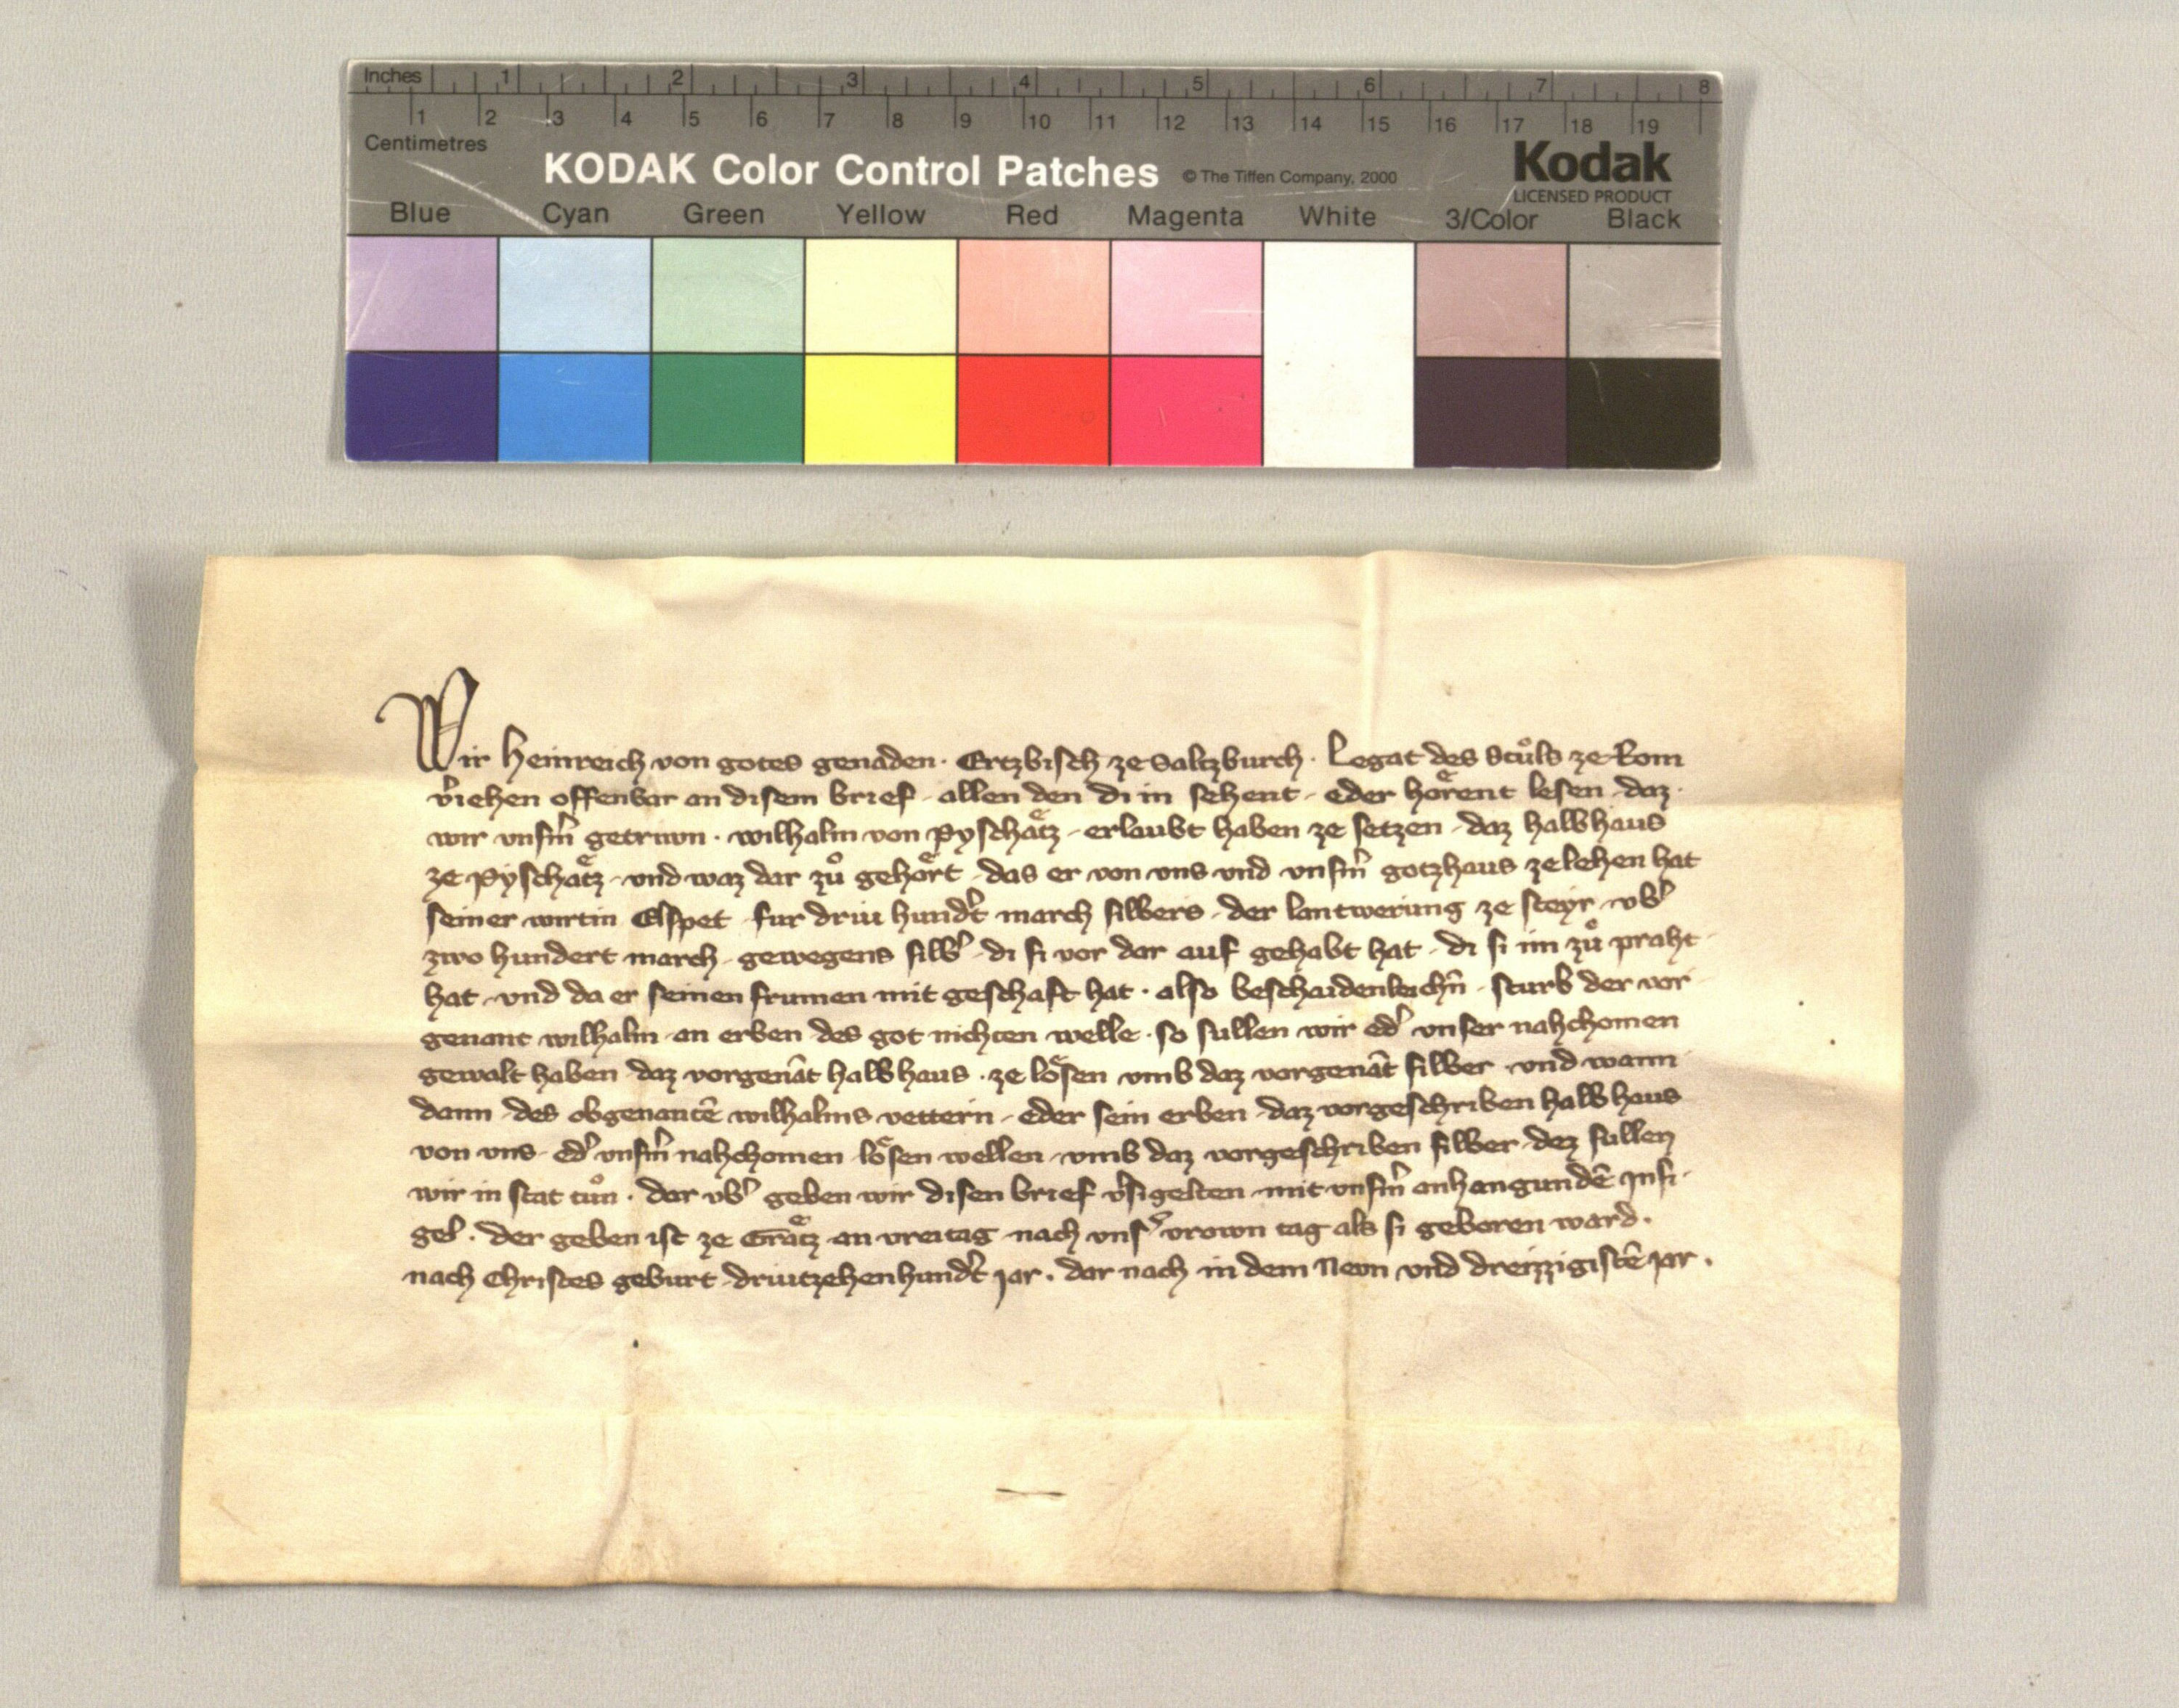 Inches 1 2 3 4 5 6 7 8
1 2 3 4 5 6 7 8 9 10 11 12 13 14 15 16 17 18 19
Centimetres
KODAK Color Control Patches © The Tiffen Company, 2000 Kodak
LICENSED PRODUCT
Blue Cyan Green Yellow Red Magenta White 3/Color Black
Wir Heinreich von gotes genaden · Ertzbisch ze Saltzburch · Legat des Stůls ze Rom
v̾iehen offenbar an disem brief · allen den di in sehent · eder hoͤrent lesen · daz ·
wir vnsm̾ getriwn · wilhalm von Pyschaͤtz · erlaubt haben ze setzen · daz halb haus
ze Pyschaͤtz · vnd waz dar zů gehoͤrt · das er von vns vnd vnsm̾ gotzhaus ze lehen hat
seiner wirtin Elspet · fur driu hund̾t march silbers · der lantwerung ze steyr · vb̾
zwo hundert march · gewegens silb̾ · di si vor dar auf gehabt hat · di si im zů praht ·
hat · vnd da er seinen frumen mit geschaft hat · also beschaidenleichn̄ · sturb der vor ·
genant wilhalm · an erben · des got nichten welle · so sullen wir ed̾ vnser nahchomen
gewalt haben · daz vorgenāt halb haus · ze loͤsen vmb daz vorgenāt silber · vnd wann
dann · des obgenantē wilhalms vettern · eder sein erben · daz vorgeschriben halb haus
von vns · ed̾ vnsm̾ nahchomen · loͤsen wellen · vmb daz vorgeschriben silber · dez sullen
wir in stat tůn · dar vb̾ geben wir disen brief v̾sigelten · mit vnsm̾ anhangundē Insi ·
gel · der geben ist ze Graͤtz · an vreitag · nach vns̾ vrown tag als si geboren ward ·
nach Christes geburt · driutzehenhund̾t jar · dar nach in dem Neun vnd dreizzigistē jar ·